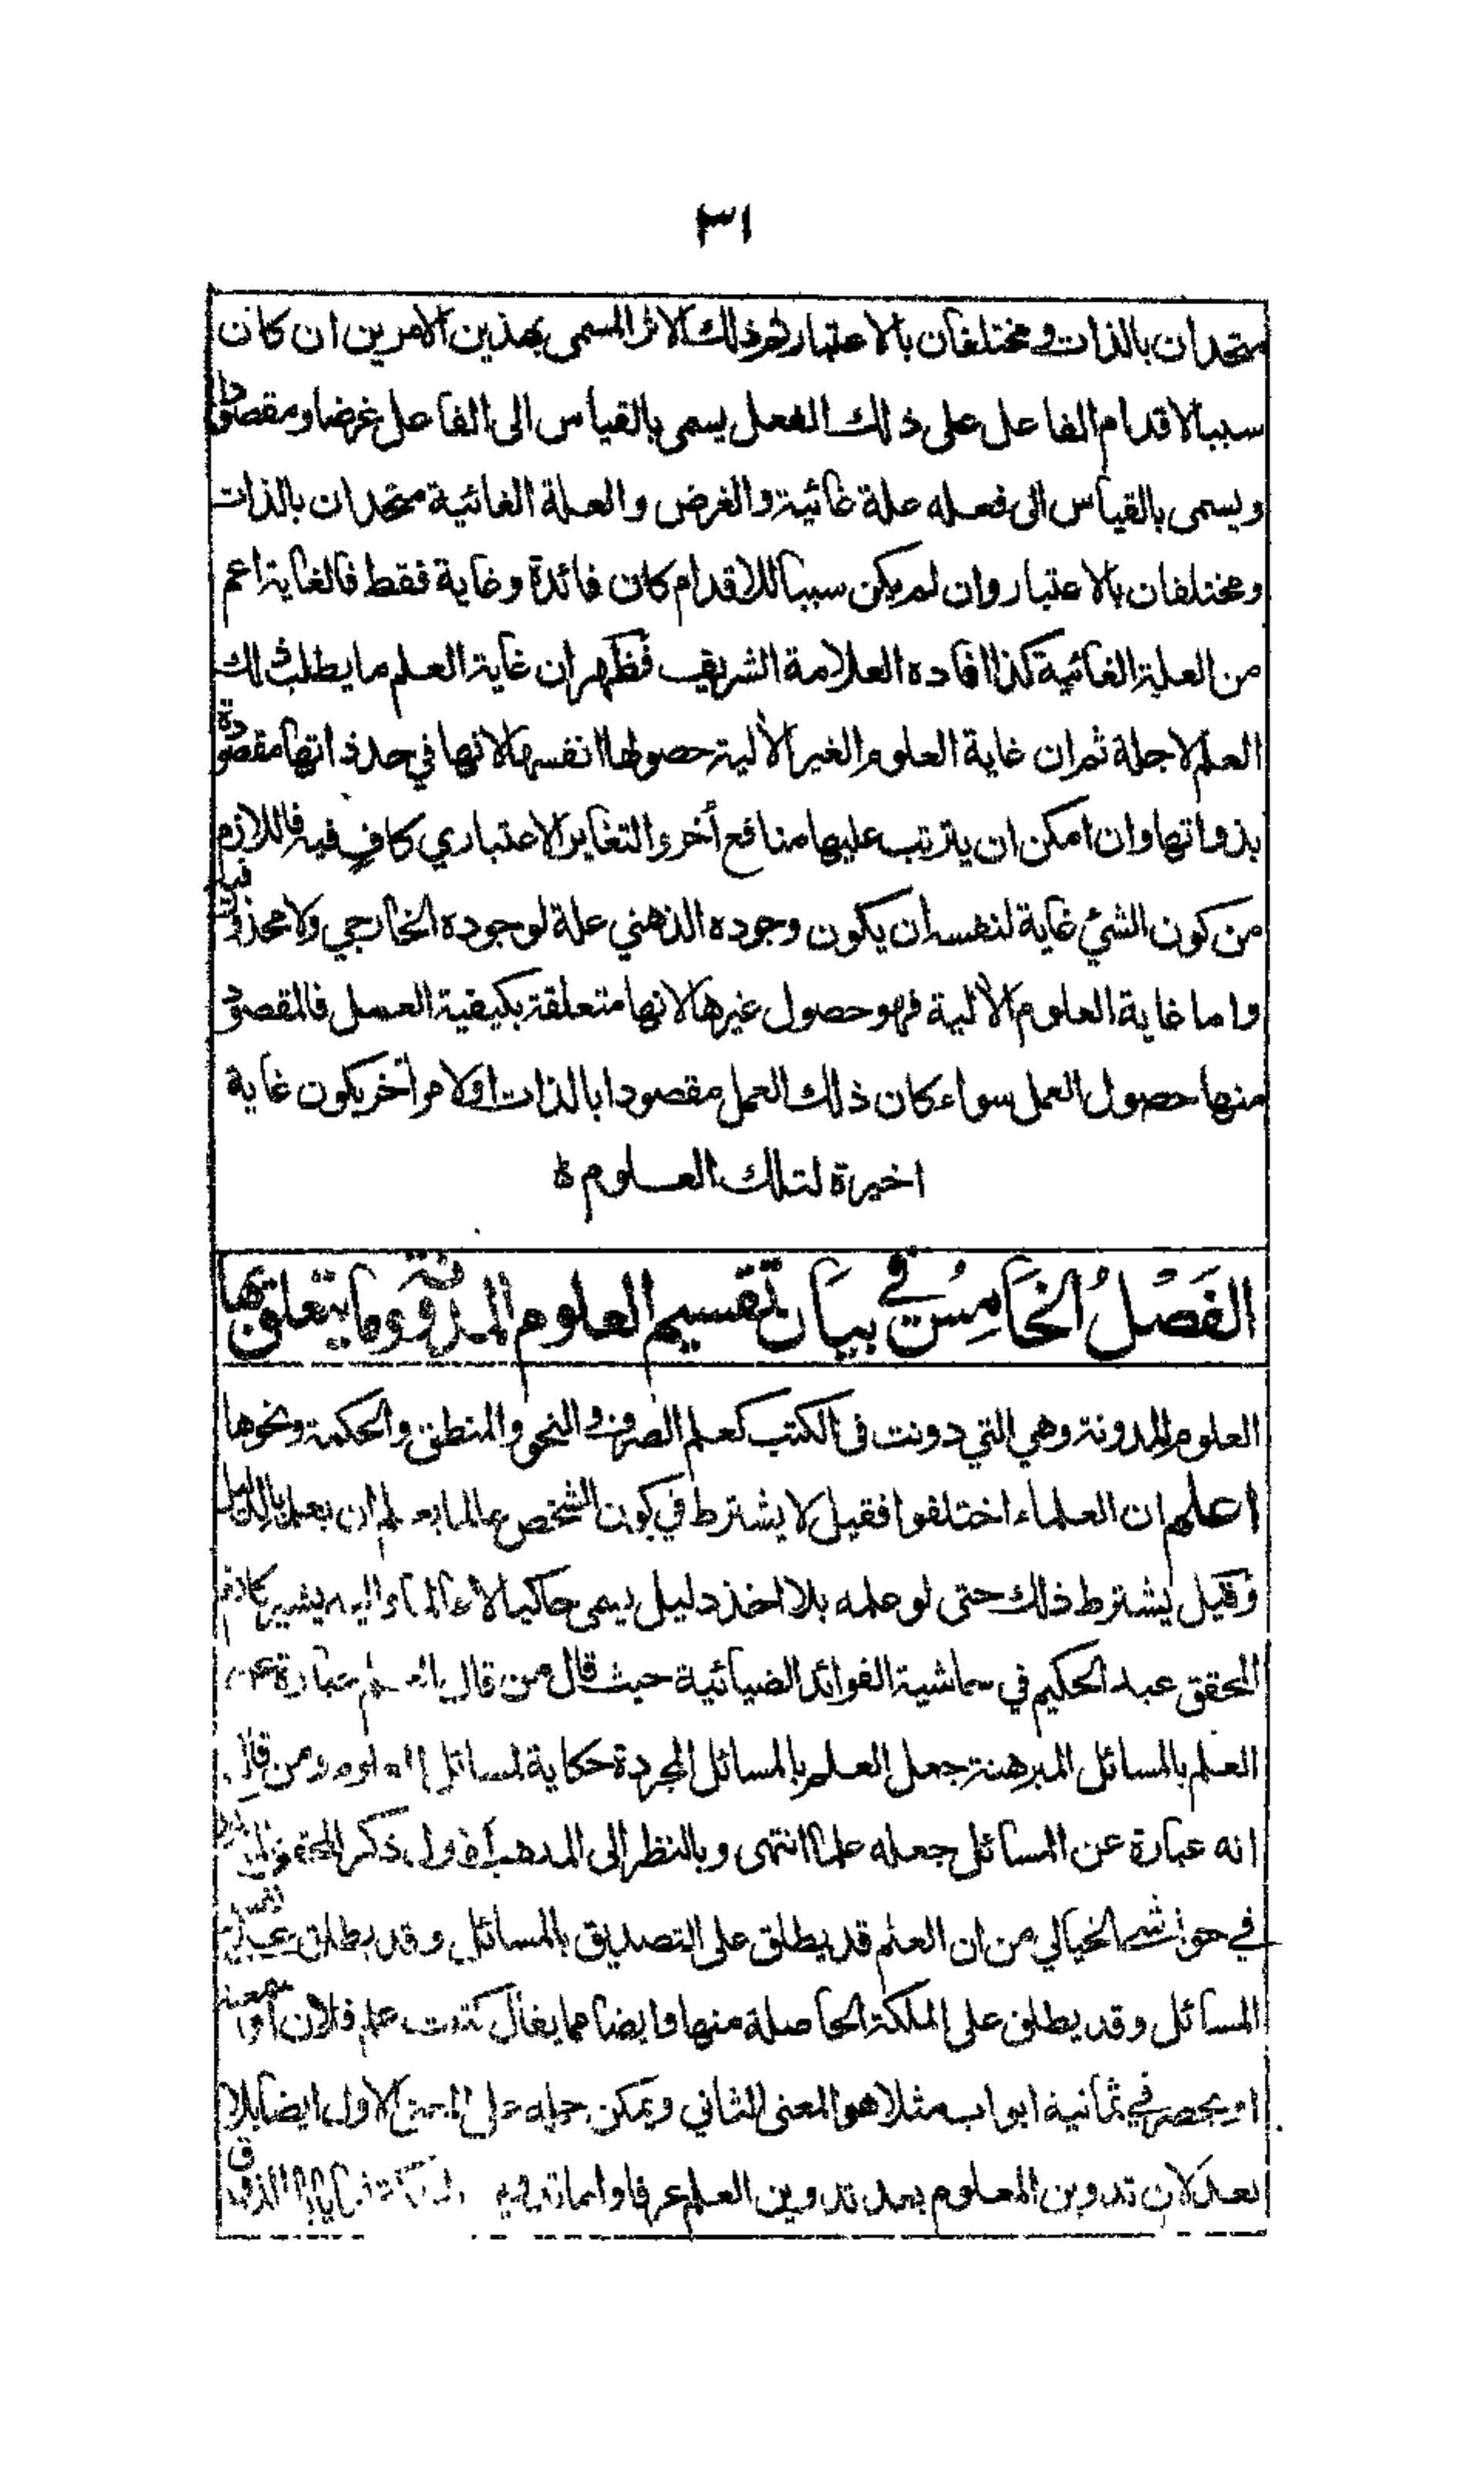 ٣١
متحدان بالذات ومختلفان بالاعتبار ثم ذلك الاثر المسمى بهذين الامرين ان كان
سببا لاقدام الفاعل على ذلك الفعل يسمى بالقياس الى الفاعل غرضا ومقصودا
ويسمى بالقياس الى فعله علة غائية والغرض والعلة الغائية متحدان بالذات
ومختلفان بالاعتبار وان لم يكن سببا للاقدام كان فائدة وغاية فقط فالغاية اعم
من العلة الغائية كذا افاده العلامة الشريف فظهر ان غاية العلم ما يطلب ذلك
العلم لاجله ثم ان غاية العلوم الغير الآلية حصولها انفسها لانها في حد ذاتها مقصودة
بذواتها وان امكن ان يترتب عليها منافع أخر والتغاير الاعتباري كافٍ فيه فاللازم
من كون الشئ غاية لنفسه ان يكون وجوده الذهني علة لوجوده الخارجي ولا محذور فيه
واما غاية العلوم الآلية فهو حصول غيرها لانها متعلقة بكيفية العمل فالمقصود
منها حصول العمل سواء كان ذلك العمل مقصودا بالذات او لامر آخر يكون غاية
اخيرة لتلك العلوم
الفَصْلُ الخَامِسُ في بيان تقسيم العلوم المدونة وما يتعلق بها
العلوم المدونة وهي التي دونت في الكتب كعلم الصرف والنحو والمنطق والحكمة ونحوها
اعلم ان العلماء اختلفوا فقيل لا يشترط في كون الشخص عالما بعلم ان يعلمه بالدليل
وقيل يشترط ذلك حتى لو علمه بلا اخذ دليل يسمى حاكيا لا عالما واليه يشير كلام
المحقق عبد الحكيم في حاشية الفوائد الضيائية حيث قال من قال العلم عبارة عن
العلم بالمسائل المبرهنة جعل العلم بالمسائل المجردة حكاية لمسائل العلوم ومن قال
انه عبارة عن المسائل جعله علما انتهى وبالنظر الى المذهب الاول ذكر المحقق
في حواشي الخيالي من ان العلم قد يطلق على التصديق بالمسائل وقد يطلق على نفس
المسائل وقد يطلق على الملكة الحاصلة منها وايضا مما يقال كتبت علم فلان او سمعته
او يحصر في ثمانية ابواب مثلا هو المعنى الثاني ويمكن حمله على المعنى الاول ايضا بلا
بعد لان تدوين المعلوم بعد تدوين العلم عرفا واما تدوين